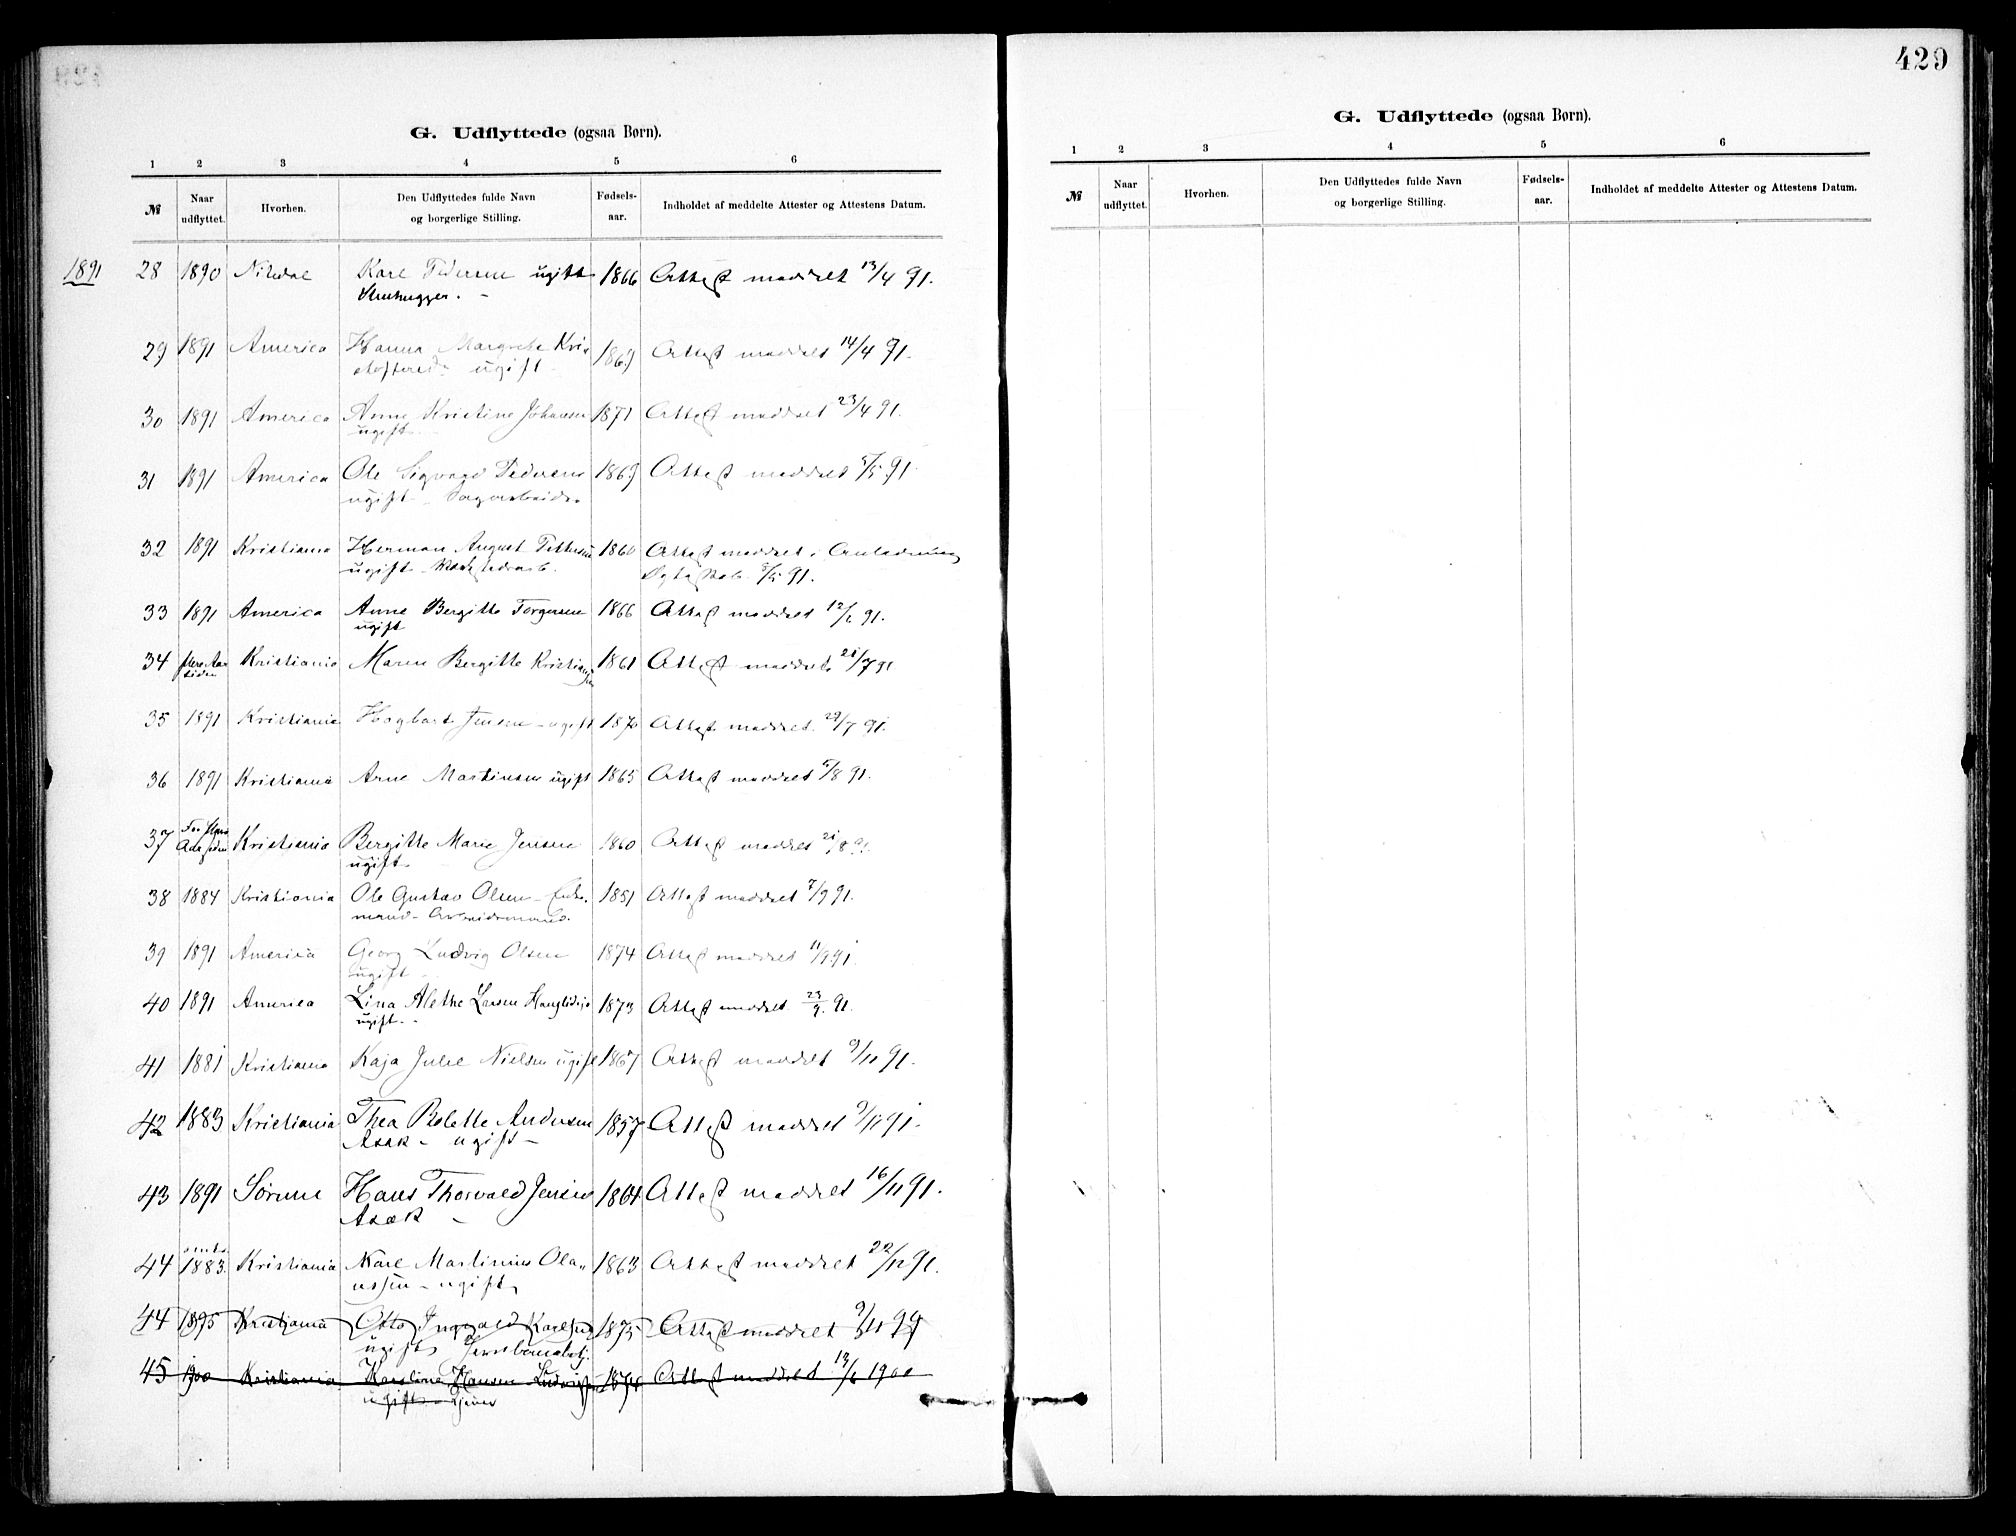 429
G. Udflyttede (ogsaa Børn).
1 2 3 4 5 6
№ Naar udflyttet. Hvorhen. Den Udflyttedes fulde Navn og borgerlige Stilling. Fødselsaar. Indholdet af meddelte Attester og Attestens Datum.
1891 28 1890 Nitedal Karl Pedersen ugift 1866 Attest meddelt 13/4 91.
Stenhugger. -
29 1891 America Hanna Margrete Kri- 1869 Attest meddelt 14/4 91.
stoffersd. ugift
30 1891 America Anne Kristine Johansen 1871 Attest meddelt 23/4 91.
ugift
31 1891 America Ole Sigvard Pedersen 1869 Attest meddelt 5/5 91
ugift
32 1891 Kristiania Herman August Pettersen 1860 Attest meddelt i Anledning
ugift 5/5 91.
33 1891 America Anne Bergitte Torgersen 1866 Attest meddelt 12/6 91.
ugift
34 flere Aar siden Kristiania Maren Bergitte Kristiansen 1861 Attest meddelt 21/7 91
35 1891 Kristiania Jensen - ugift 1870 Attest meddelt 29/7 91.
36 1891 Kristiania Arne Martinsen ugift 1865 Attest meddelt 5/8 91.
37 For flere Aar siden Kristiania Bergitte Marie Jensen 1860 Attest meddelt 21/8 91.
ugift
38 1884 Kristiania Ole Gustav Olsen - Enke- 1851 Attest meddelt 7/9 91.
mand - Arbeidsmand.
39 1891 America Georg Ludvig Olsen 1874 Attest meddelt 11/9 91.
ugift
40 1891 America Lina Alethe Larsen 1873 Attest meddelt 23/9. 91.
ugift. -
41 1881 Kristiania Kaja Julie Nielsen ugift 1867 Attest meddelt 9/11 91.
42 1883 Kristiania Thea Bolette Andersen 1857 Attest meddelt 9/11 91.
Asak - ugift -
43 1891 Sørum Hans Thorvald Jensen 1864 Attest meddelt 16/11 91.
Asak -
44 omtr. 1883. Kristiania Karl Martinius Ola- 1863 Attest meddelt 22/12 91.
ussen - ugift
44 1895 Kristiania Otto Ingvald Karlsen 1875 Attest meddelt 9/11 99
ugift
45 1900 Kristiania Karoline Hansen 1874 Attest meddelt 13/6 1900
ugift
G. Udflyttede (ogsaa Børn).
1 2 3 4 5 6
№ Naar udflyttet. Hvorhen. Den Udflyttedes fulde Navn og borgerlige Stilling. Fødselsaar. Indholdet af meddelte Attester og Attestens Datum.